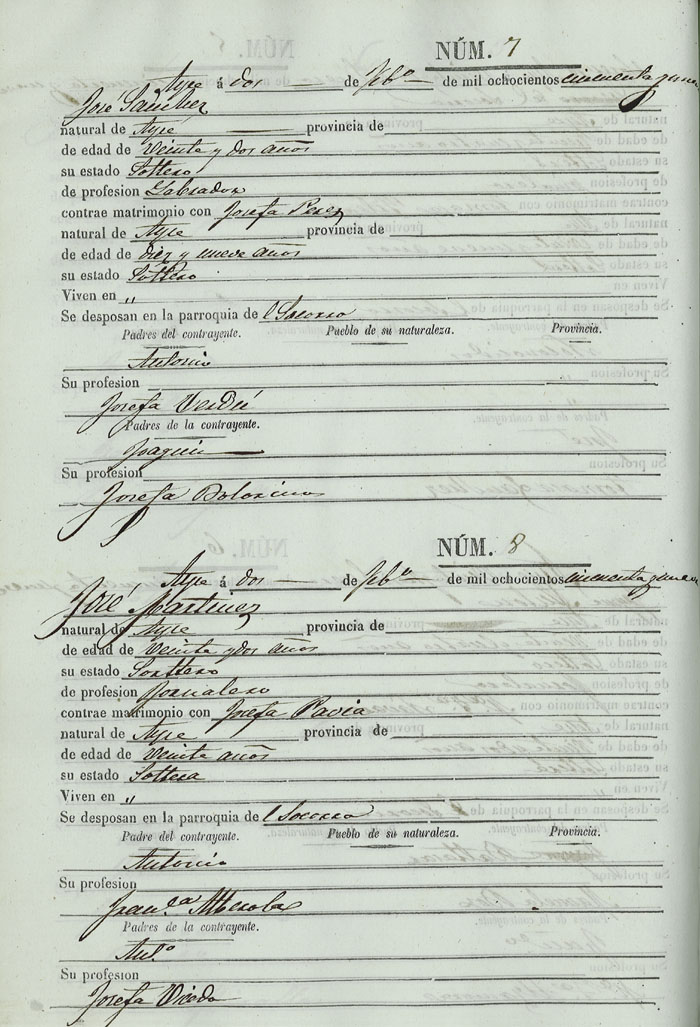 NÚM. 7
Aspe á dos de Feb.o de mil ochocientos cincuenta y uno
José Sanchez
natural de Aspe provincia de
de edad de Veinte y dos años
su estado Soltero
de profesion Labrador
contrae matrimonio con Josefa Perez
natural de Aspe provincia de
de edad de diez y nueve años
su estado Soltero
Viven en "
Se desposan en la parroquia de l Socorro
Padres del contrayente. Pueblo de su naturaleza. Provincia.
Antonio
Su profesion
Josefa Verdú
Padres de la contrayente.
Joaquin
Su profesion
Josefa Bolorinos
NÚM. 8
Aspe á dos de Feb.o de mil ochocientos cincuenta y uno
José Martinez
natural de Aspe provincia de
de edad de Veinte y dos años
su estado Sortero
de profesion Jornalero
contrae matrimonio con Josefa Pavia
natural de Aspe provincia de
de edad de Veinte años
su estado Soltera
Viven en "
Se desposan en la parroquia de l Socorro
Padre del contrayente. Pueblo de su naturaleza. Provincia.
Antonio
Su profesion
Fran.ca Alberola
Padres de la contrayente.
Ant.o
Su profesion
Josefa